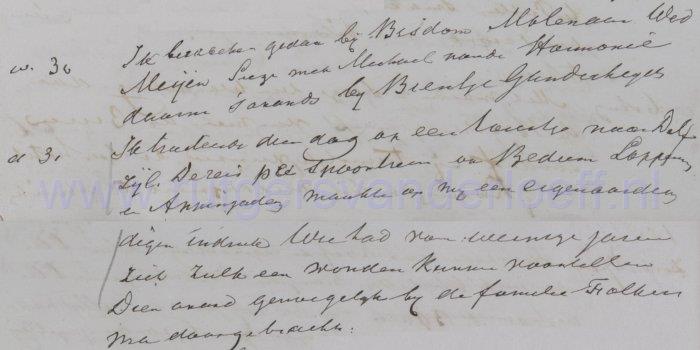 w. 30 Ik bezoeken gedaan bij Bisdom Molenaar Wed
Meijer Sieze met Michael van de Harmonie
daarna 's avonds bij Brentje Gunderheyer
d 31 Ik trakteerde dien dag op een toertje naar Delf
zijl. De reis per spoortrein over Bedum Loppers
en Appingedam maakten op mij een eigenaardig
digen indruk Wie had voor weinige jaren
zich zulk een wonder kunnen voorstellen
Dien avond genoegelijk bij de familie Folkers
ma doorgebracht.
www.rutgersvanderloeff.nl